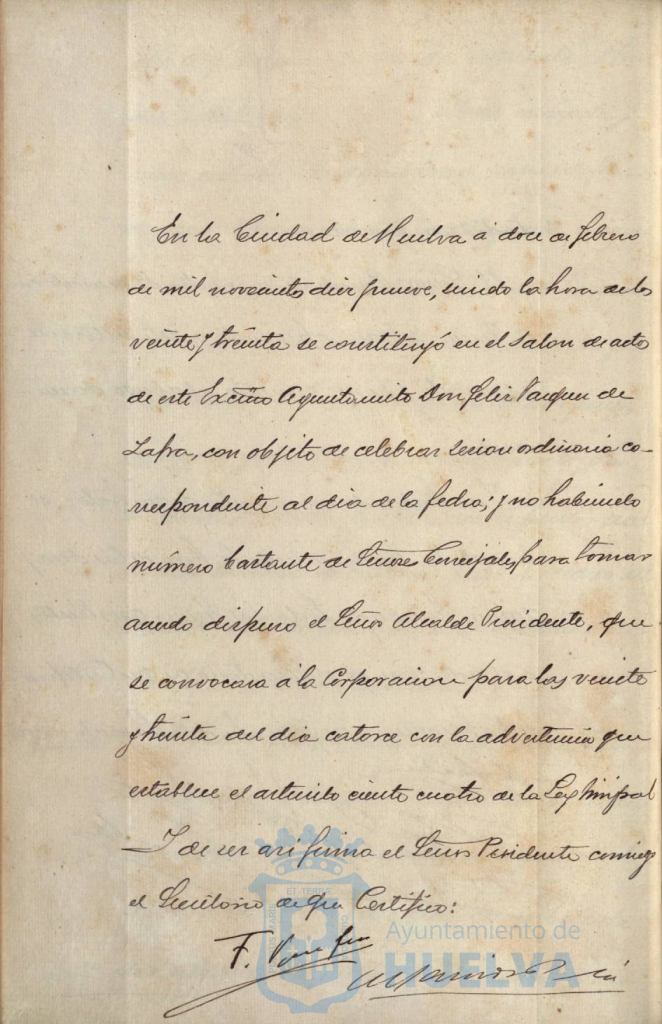 En la Ciudad de Huelva á doce de febrero
de mil novecientos diez y nueve, siendo la hora de las
veinte y treinta se constituyó en el Salon de acto
de este Excmo Ayuntamiento Don Felix Vazquez de
Zafra, con objeto de celebrar sesion ordinaria co-
rrespondiente al dia de la fecha; y no habiendo
número bastante de Señores Concejales, para tomar
acuerdo dispuso el Señor Alcalde Presidente, que
se convocara á la Corporacion para las veinte
y treinta del dia catorce con la advertencia que
establece el articulo ciento cuatro de la Ley Mnipal
Y de ser asi firma el Señor Presidente conmigo
el Secretario de que Certifico:
F.
Ayuntamiento de
HUELVA